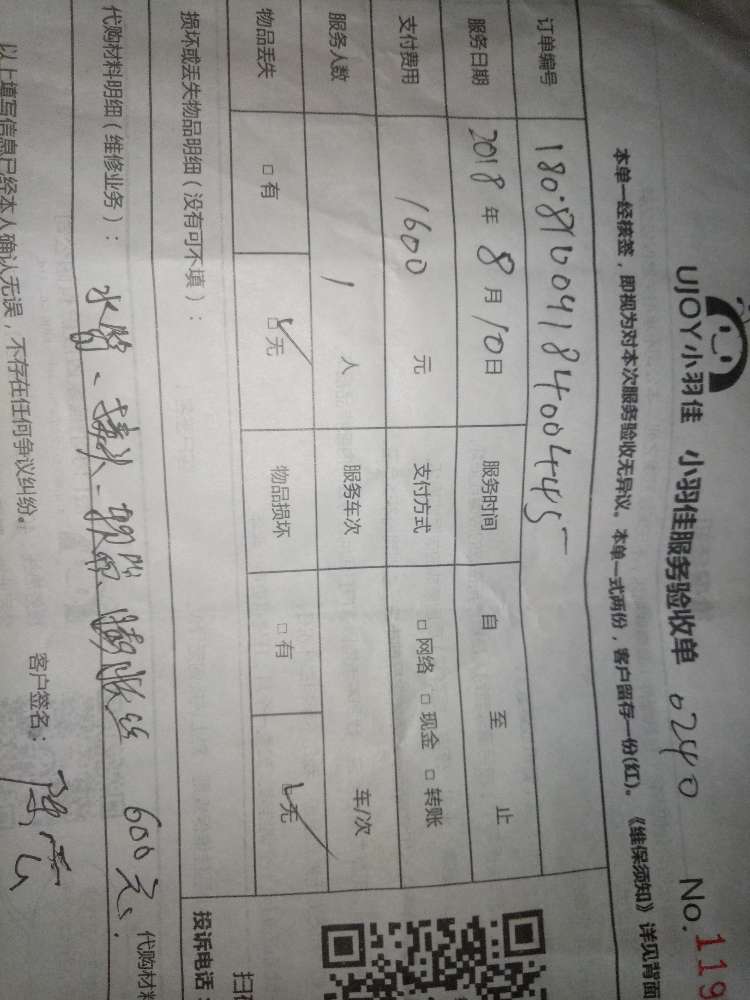 UJOY小羽佳 小羽佳服务验收单 0240 No. 119
本单一经核签，即视为对本次服务验收无异议。本单一式两份，客户留存一份(红)。《维保须知》详见背面
订单编号 180810041840045
服务日期 2018 年 8 月 10 日 服务时间 自 至 止
支付费用 1600 元 支付方式 □ 网络 □ 现金 □ 转账
服务人数 1 人 服务车次 车/次
物品丢失 □ 有 □ 无 物品损坏 □ 有 □ 无
损坏或丢失物品明细（没有可不填）：
代购材料明细（维修业务）： 水管、接头、膨胀丝 600元. 代购材料
以上填写信息已经本人确认无误，不存在任何争议纠纷。
客户签名：
投诉电话：